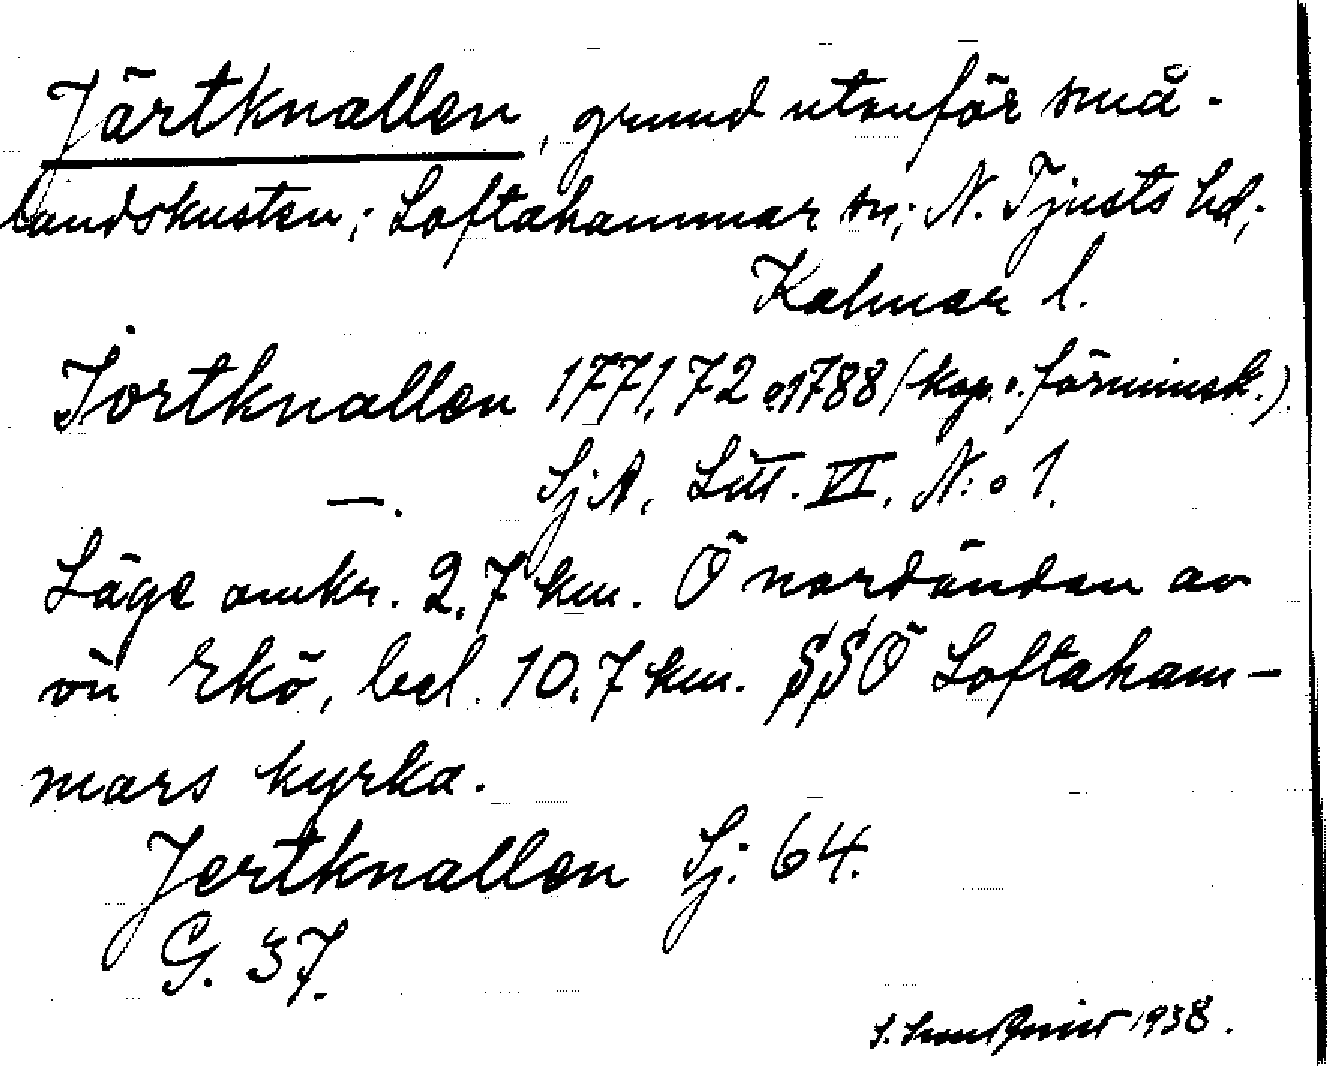 Järtknallen, grund utanför små-
landskusten; Loftahammar sn; N. Tjusts hd;
Kalmar l.
Jortknallen 1771, 72 o. 1788 (kop. o. förminsk.)
—. SjA, Litt. VI, N:o 1.
Läge omkr. 2.7 km. Ö nordändan av
ön Ekö, bel. 10.7 km. SSÖ Loftaham-
mars kyrka.
Jertknallen Sj: 64.
G. 37.
1938.